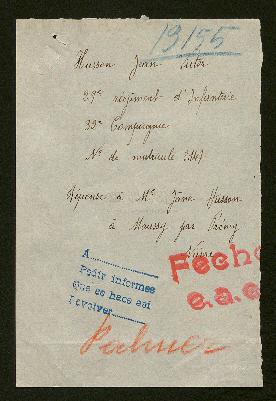 19155
Husson Jean
29e régiment d'Infanterie
33e Compagnie
No de matricule
Réponse à Me Jane Husson
à Moussy par Prémery
Nièvre
A
Pedir informes
Que se hace así
Devolver
Fecho
c.a.c